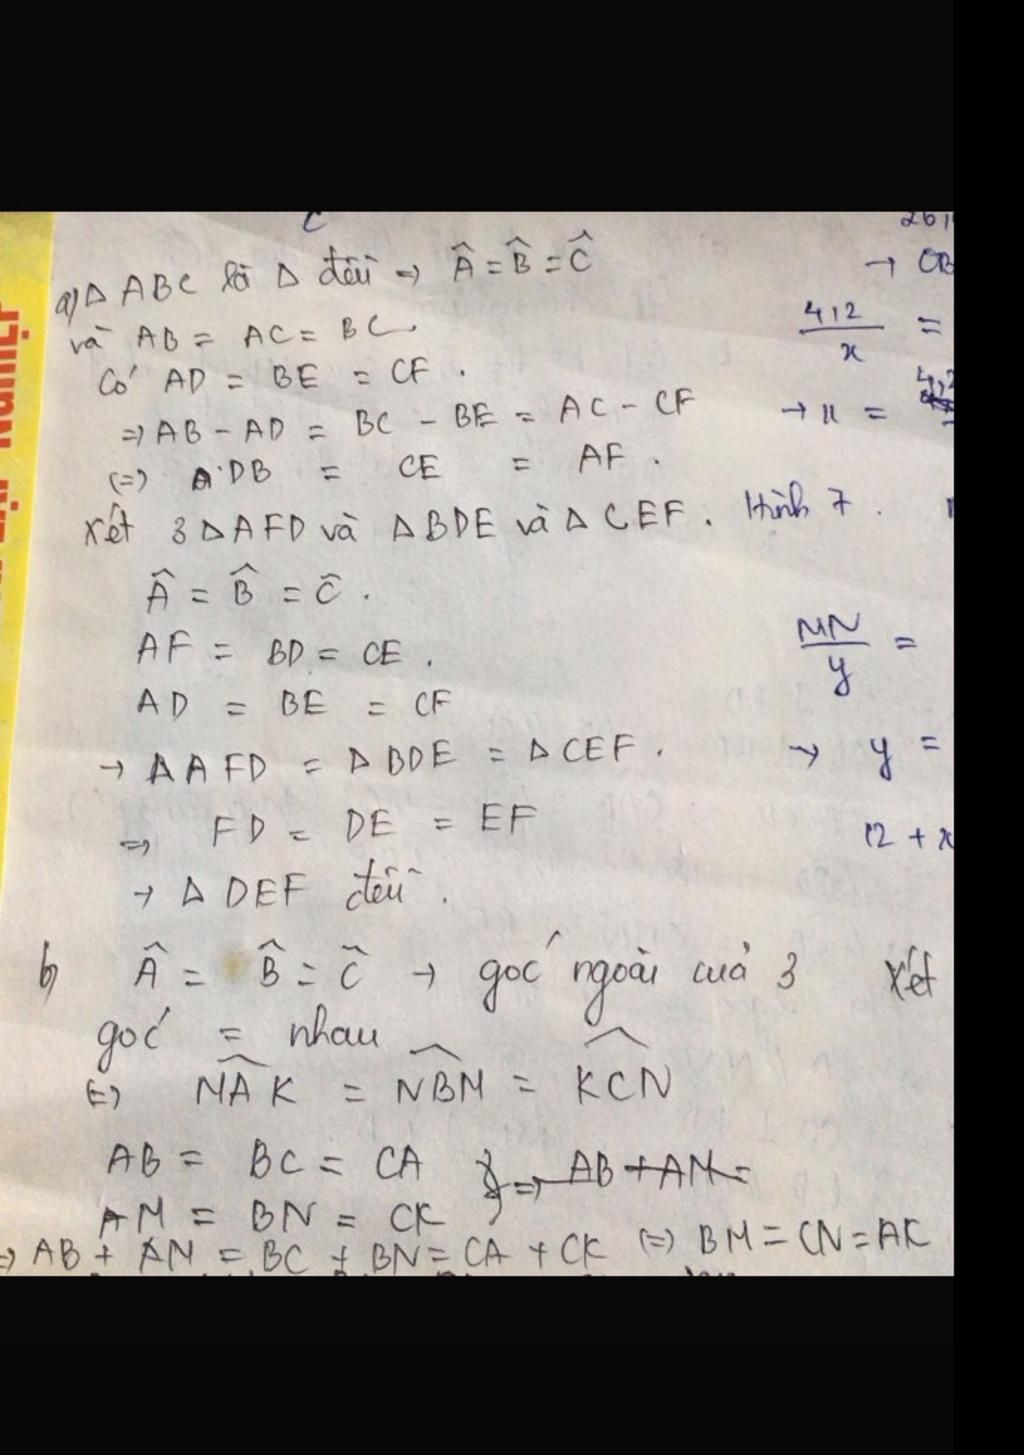 C
a) Δ ABC là Δ đều → Â = B̂ = Ĉ
và AB = AC = BC.
Có AD = BE = CF .
⇒ AB - AD = BC - BE = AC - CF
(=) DB = CE = AF .
Xét 3 Δ AFD và Δ BDE và Δ CEF .
Â = B̂ = Ĉ .
AF = BD = CE .
AD = BE = CF
→ Δ AFD = Δ BDE = Δ CEF .
⇒ FD = DE = EF
→ Δ DEF đều .
b) Â = B̂ = Ĉ → góc ngoài của 3
góc = nhau
(=) MAK = NBM = KCN
AB = BC = CA } ⇒ AB + AM =
AM = BN = CK
⇒ AB + AM = BC + BN = CA + CK (=) BM = CN = AK
→ CB
4,2 / x =
→ x =
Hình 7 .
MN / y =
→ y =
12 + x
Xét